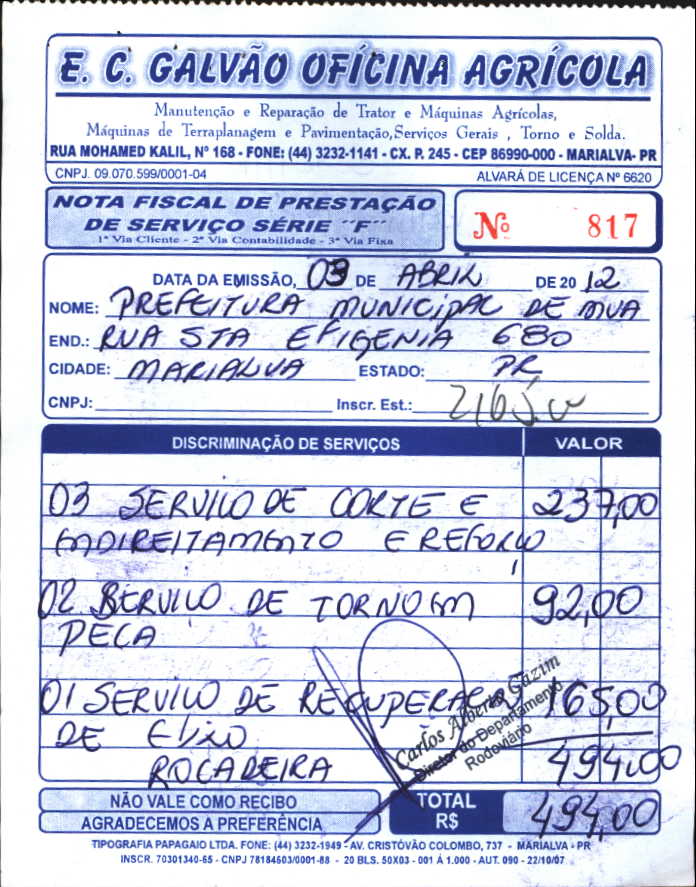 E. C. GALVÃO OFÍCINA AGRÍCOLA
Manutenção e Reparação de Trator e Máquinas Agrícolas,
Máquinas de Terraplanagem e Pavimentação,Serviços Gerais , Torno e Solda.
RUA MOHAMED KALIL, Nº 168 - FONE: (44) 3232-1141 - CX. P. 245 - CEP 86990-000 - MARIALVA- PR
CNPJ. 09.070.599/0001-04 ALVARÁ DE LICENÇA Nº 6620
NOTA FISCAL DE PRESTAÇÃO
DE SERVIÇO SÉRIE ´´F´´
1ª Via Cliente - 2ª Via Contabilidade - 3ª Via Fixa
Nº 817
DATA DA EMISSÃO, 03 DE ABRIL DE 2012
NOME: PREFEITURA MUNICIPAL DE MVA
END.: RUA STA EFIGENIA 680
CIDADE: MARIALVA ESTADO: PR
CNPJ: Inscr. Est.:
DISCRIMINAÇÃO DE SERVIÇOS VALOR
03 SERVIÇO DE CORTE E 237,00
ENDIREITAMENTO E REFORÇO
02 SERVIÇO DE TORNO EM 92,00
PEÇA
01 SERVIÇO DE RECUPERAÇÃO 165,00
DE EIXO
ROÇADEIRA 494,00
Carlos Alberto Gazim
Diretor do Departamento
Rodoviário
NÃO VALE COMO RECIBO
AGRADECEMOS A PREFERÊNCIA
TOTAL R$ 494,00
TIPOGRAFIA PAPAGAIO LTDA. FONE: (44) 3232-1949 - AV. CRISTÓVÃO COLOMBO, 737 - MARIALVA - PR
INSCR. 70301340-65 - CNPJ 78184603/0001-88 - 20 BLS. 50X03 - 001 Á 1.000 - AUT. 090 - 22/10/07